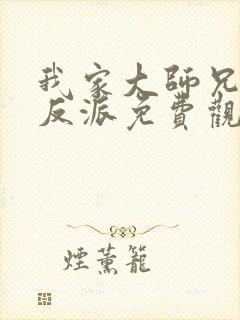 我家大師兄
反派免費觀
煙薰籠